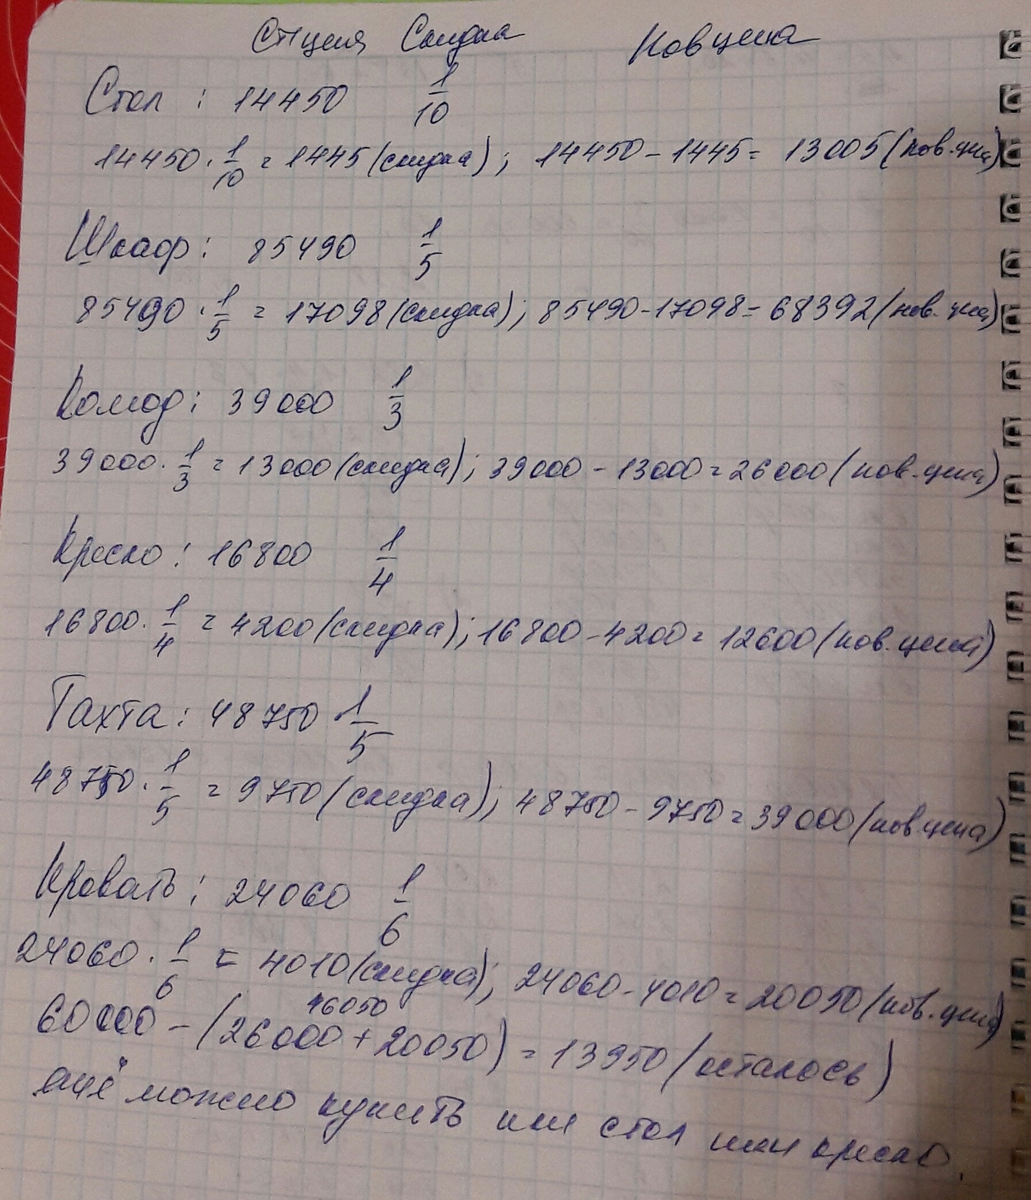 Ст цена Скидка Нов цена
Стол : 14450 1/10
14450 · 1/10 = 1445 (скидка); 14450 - 1445 = 13005 (нов. цена)
Шкаф : 85490 1/5
85490 · 1/5 = 17098 (скидка); 85490 - 17098 = 68392 (нов. цена)
Комод : 39000 1/3
39000 · 1/3 = 13000 (скидка); 39000 - 13000 = 26000 (нов. цена)
Кресло : 16800 1/4
16800 · 1/4 = 4200 (скидка); 16800 - 4200 = 12600 (нов. цена)
Тахта : 48750 · 1/5
48750 · 1/5 = 9750 (скидка); 48750 - 9750 = 39000 (нов цена)
Кровать : 24060 1/6
24060 · 1/6 = 4010 (скидка); 24060 - 4010 = 20050 (нов. цена)
46050
60000 - (26000 + 20050) = 13950 (осталось)
ещё можно купить или стол или кресло.